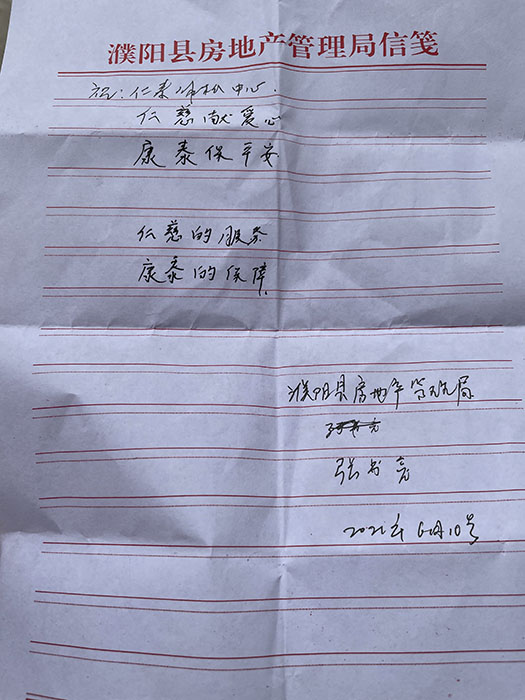 濮阳县房地产管理局信笺
祝：仁泰 中心.
仁慈献爱心
康泰保平安
仁慈的服务
康泰的保障
濮阳县房地产管理局
张书亮
2021年6月10号